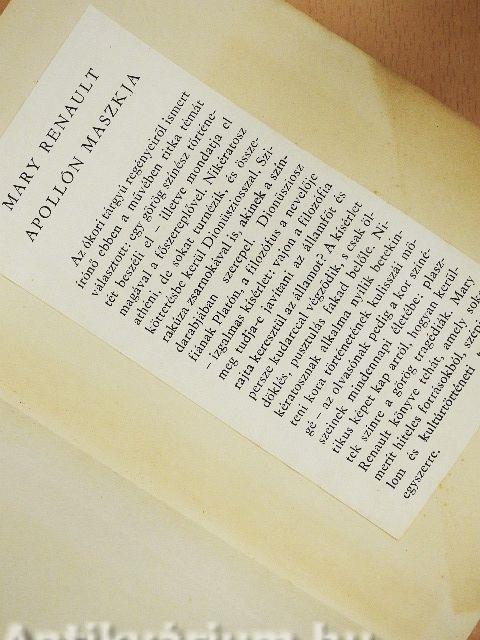 MARY RENAULT
APOLLÓN MASZKJA
Az ókori tárgyú regényeiről ismert
írónő ebben a művében ritka témát
választott: egy görög színész történe-
tét beszéli el – illetve mondatja el
magával a főszereplővel. Nikératosz
athéni, de sokat turnézik, és össze-
köttetésbe kerül Dionüsziosszal, Szi-
rakúza zsarnokával is, akinek a szín-
darabjában szerepel. Dionüsziosz
fiának Platón, a filozófus a nevelője
– izgalmas kísérlet: vajon a filozófia
meg tudja-e javítani az államfőt és
rajta keresztül az államot? A kísérlet
persze kudarccal végződik, s csak öl-
döklés, pusztulás fakad belőle. Ni-
kératosznak alkalma nyílik betekin-
teni kora történetének kulisszái mö-
gé – az olvasónak pedig a kor színé-
szeinek mindennapi életébe; plasz-
tikus képet kap arról, hogyan kerül-
tek színre a görög tragédiák. Mary
Renault könyve tehát, amely
merít hiteles forrásokból,
lom és kultúrtörténeti
egyszerre.
Antikvárium.hu